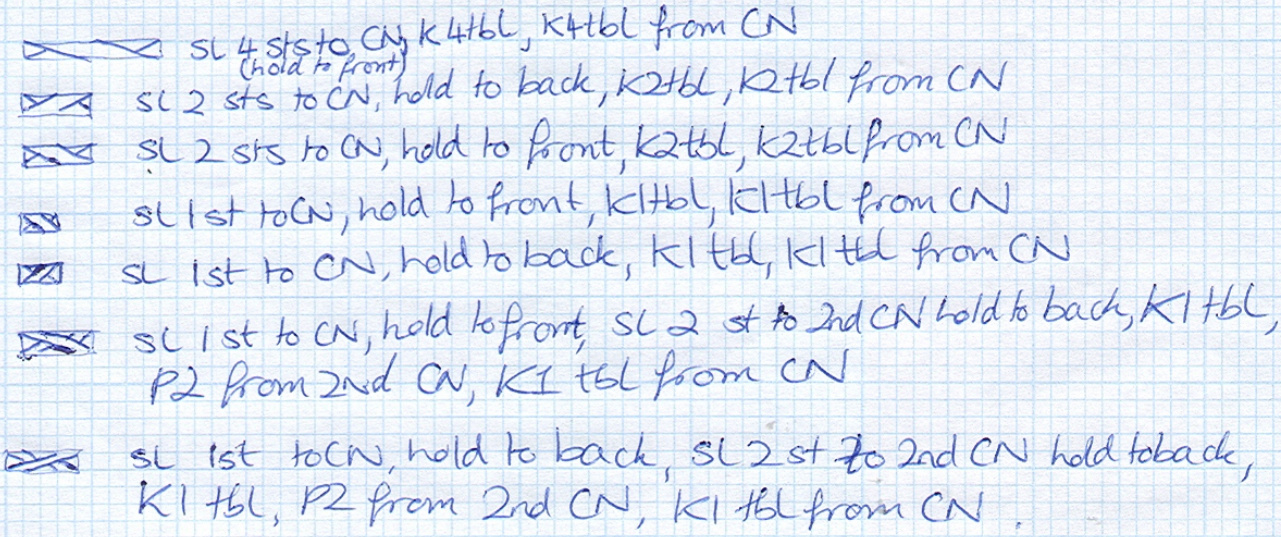 SL 4 sts to CN, K4tbl, K4tbl from CN
(hold to front)
SL 2 sts to CN, hold to back, K2tbl, K2tbl from CN
SL 2 sts to CN, hold to front, K2tbl, K2tbl from CN
SL 1st to CN, hold to front, K1tbl, K1tbl from CN
SL 1st to CN, hold to back, K1 tbl, K1 tbl from CN
SL 1st to CN, hold to front, SL 2 st to 2nd CN hold to back, K1 tbl,
P2 from 2nd CN, K1 tbl from CN
SL 1st to CN, hold to back, SL 2 st to 2nd CN hold to back,
K1 tbl, P2 from 2nd CN, K1 tbl from CN.